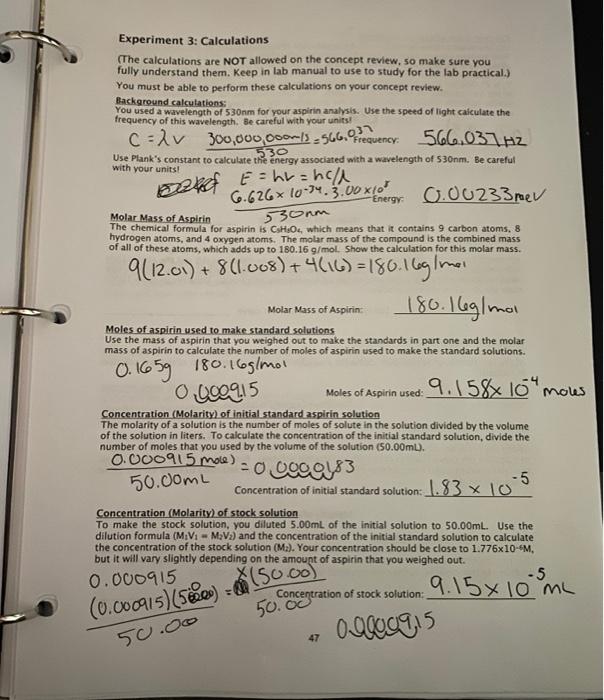 Experiment 3: Calculations
(The calculations are NOT allowed on the concept review, so make sure you
fully understand them. Keep in lab manual to use to study for the lab practical.)
You must be able to perform these calculations on your concept review.
Background calculations:
You used a wavelength of 530nm for your aspirin analysis. Use the speed of light calculate the
frequency of this wavelength. Be careful with your units!
C = λν 300,000,000m/s = 566,037 Frequency: 566,037 Hz
530
Use Plank's constant to calculate the energy associated with a wavelength of 530nm. Be careful
with your units!
E = hν = hc/λ
6.626 x 10^-34 · 3.00 x 10^8 Energy: 0.00233 meV
530nm
Molar Mass of Aspirin
The chemical formula for aspirin is C₉H₈O₄, which means that it contains 9 carbon atoms, 8
hydrogen atoms, and 4 oxygen atoms. The molar mass of the compound is the combined mass
of all of these atoms, which adds up to 180.16 g/mol. Show the calculation for this molar mass.
9(12.01) + 8(1.008) + 4(16) = 180.16g/mol
Molar Mass of Aspirin: 180.16g/mol
Moles of aspirin used to make standard solutions
Use the mass of aspirin that you weighed out to make the standards in part one and the molar
mass of aspirin to calculate the number of moles of aspirin used to make the standard solutions.
0.165g 180.16g/mol
0.000915 Moles of Aspirin used: 9.158 x 10^-4 moles
Concentration (Molarity) of initial standard aspirin solution
The molarity of a solution is the number of moles of solute in the solution divided by the volume
of the solution in liters. To calculate the concentration of the initial standard solution, divide the
number of moles that you used by the volume of the solution (50.00mL).
0.000915 moles = 0.0000183
50.00mL
Concentration of initial standard solution: 1.83 x 10^-5
Concentration (Molarity) of stock solution
To make the stock solution, you diluted 5.00mL of the initial solution to 50.00mL. Use the
dilution formula (M₁V₁ = M₂V₂) and the concentration of the initial standard solution to calculate
the concentration of the stock solution (M₂). Your concentration should be close to 1.776x10⁻⁶M,
but it will vary slightly depending on the amount of aspirin that you weighed out.
0.000915 x(50.00)
(0.000915)(5.00) = Concentration of stock solution: 9.15 x 10^-5 mL
50.00 50.00
47 0.0000915